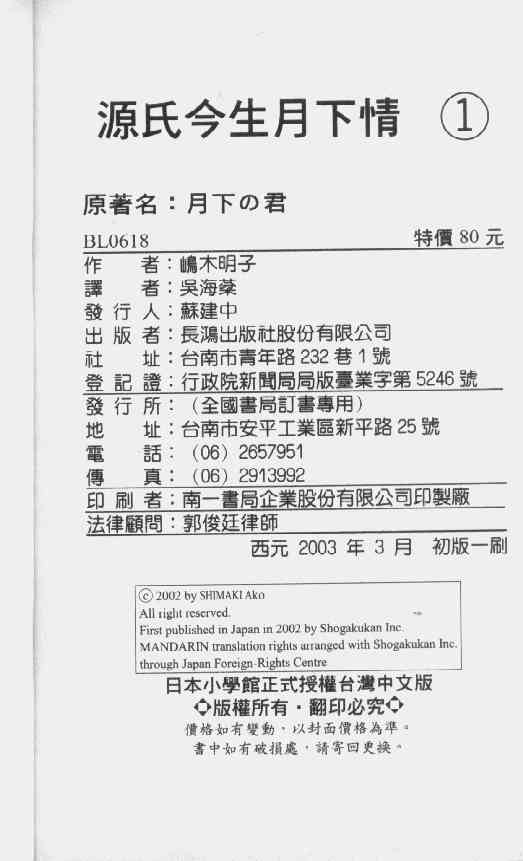 源氏今生月下情 ①
原著名：月下の君
BL0618 特價 80 元
作 者：嶋木明子
譯 者：吳海棻
發 行 人：蘇建中
出 版 者：長鴻出版社股份有限公司
社 址：台南市青年路 232 巷 1 號
登 記 證：行政院新聞局局版臺業字第 5246 號
發 行 所：（全國書局訂書專用）
地 址：台南市安平工業區新平路 25 號
電 話：（06）2657951
傳 真：（06）2913992
印 刷 者：南一書局企業股份有限公司印製廠
法律顧問：郭俊廷律師
西元 2003 年 3 月 初版一刷
© 2002 by SHIMAKI Ako
All right reserved.
First published in Japan in 2002 by Shogakukan Inc.
MANDARIN translation rights arranged with Shogakukan Inc.
through Japan Foreign-Rights Centre
日本小學館正式授權台灣中文版
◇版權所有・翻印必究◇
價格如有變動，以封面價格為準。
書中如有破損處，請寄回更換。